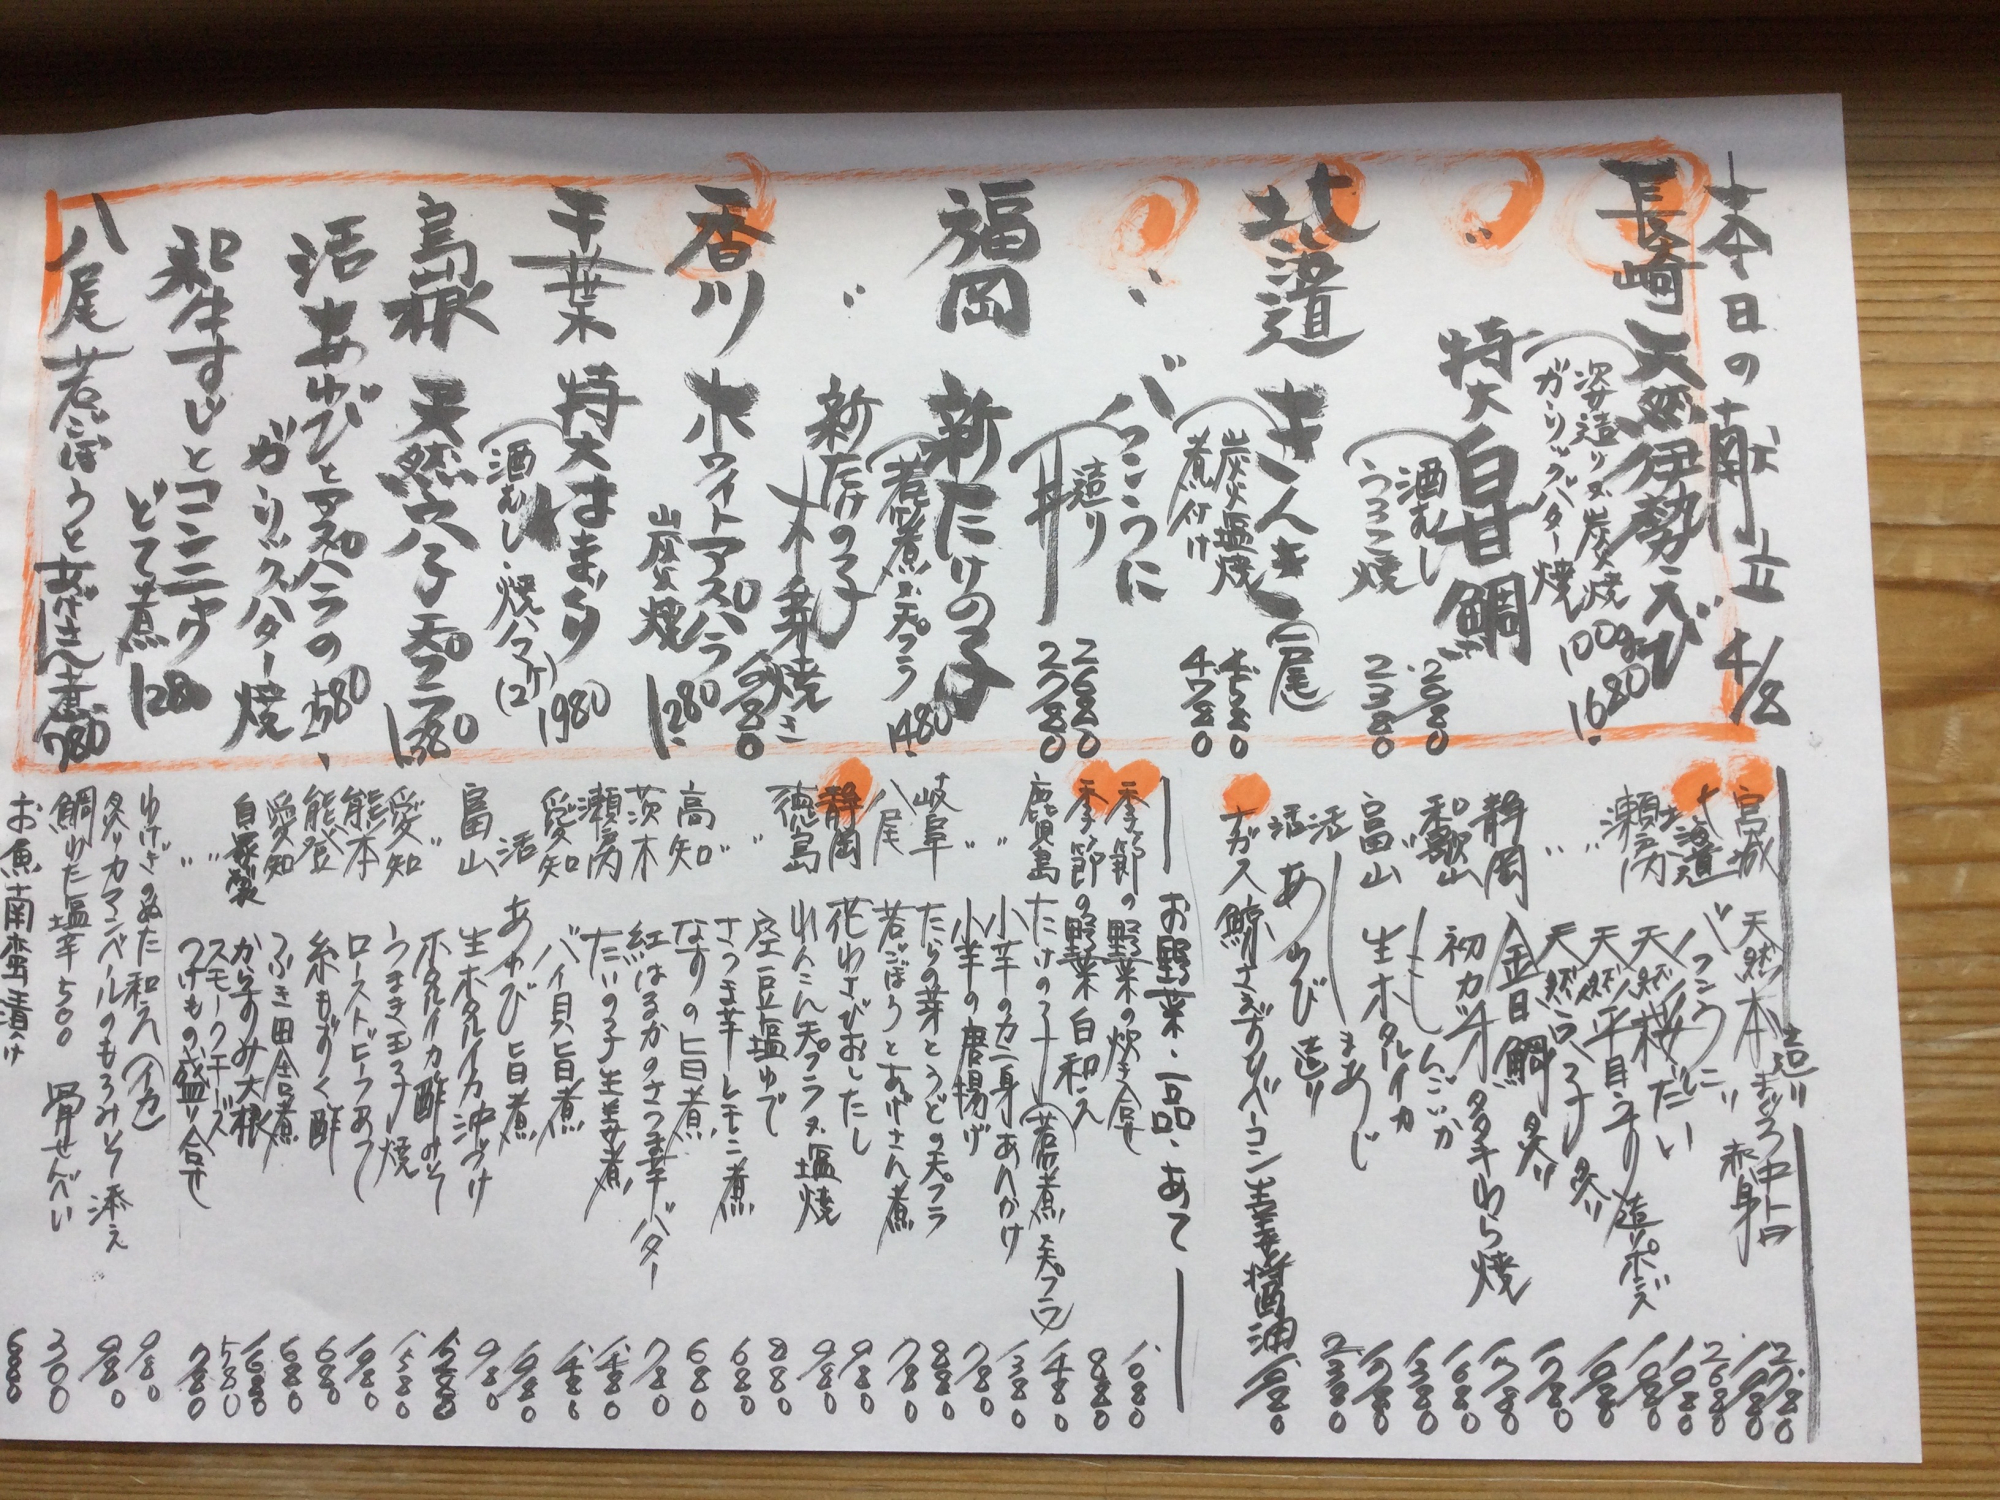 本日の献立 4/8
長崎 天然伊勢えび
姿造り又炭焼
ガーリックバター焼 100g 1680.
〃 特大 白甘鯛
酒むし
うろこ焼 2380
北海道 きんき 一尾
炭火塩焼 4580
煮付け 4780
〃 バフンうに
造り 2680
丼 2780
福岡 新たけの子
若煮又天プラ 1480.
〃 新たけの子
木の芽焼き
香川 ホワイトアスパラ
炭焼 1280.
千葉 特大はまぐり
酒むし・焼ハマ (2ケ) 1980
島根 天然穴子天プラ 1380
活あわびとアスパラの
ガーリックバター焼
和牛すじとコンニャク
どて煮 1280
八尾若ごぼうとあげさん煮 780
造り
宮城 天然本まぐろ中トロ 2780
赤身 1980
北海道 バフンうに 2680
瀬戸内 天然桜だい 1080
〃 天然平目うすり造りポン酢
〃 天然穴子 炙り
静岡 金目鯛 炙り 1780
和歌山 初カツオタタキわら焼 1680
〃 しんこいか 1380
富山 生ホタルイカ
活 まあじ 1780
活 あわび 造り 2380
ナガス鯨さえずりベーコン生姜醤油
お野菜・一品・あて
季節の野菜の炊き合せ 1080
季節の野菜白和え 880
鹿児島 たけの子(若煮又天プラ) 1480
〃 小芋のカニ身あんかけ 1380
〃 小芋の唐揚げ 780
岐阜 たらの芽とうどの天プラ 880
八尾 若ごぼうとあげさん煮 780
静岡 花わさびおしたし 980
徳島 れんこん天プラ又塩焼 980
〃 空豆塩ゆで 880
〃 さつま芋レモン煮 680
高知 なすの旨煮 680
茨木 紅はるかのさつま芋バター 780
瀬戸内 たいの子生姜煮
愛知 バイ貝旨煮
活 あわび旨煮
富山 生ホタルイカ沖づけ 980
〃 ホタルイカ酢みそ
愛知 うまき玉子焼
熊本 ローストビーフあて
能登 糸もずく酢 680
愛知 ふき田舎煮 680
自家製 からすみ大根 1680
〃 スモークチーズ 580
〃 つけもの盛り合せ 780
わけぎのぬた和え(イカ) 980
炙りカマンベールのもろみそ添え 980
鯛わた塩辛 500 骨せんべい 300
お魚南蛮漬け 680